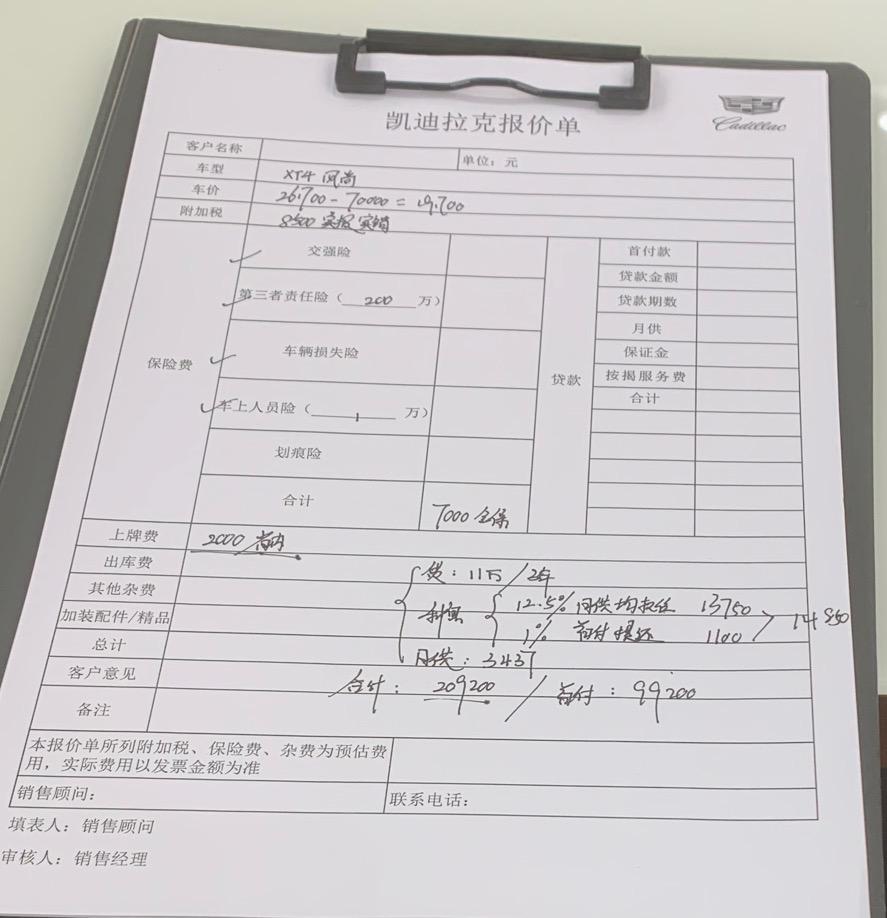 Cadillac
凯迪拉克报价单
客户名称
单位：元
车型 XT4 风尚
车价 26.700 - 70000 = 19.700
附加税 8500 实报实销
保险费
交强险
第三者责任险（ 200 万）
车辆损失险
车上人员险（ 1 万）
划痕险
合计 7000 全保
贷款
首付款
贷款金额
贷款期数
月供
保证金
按揭服务费
合计
上牌费 2000
出库费
其他杂费
加装配件/精品
总计
客户意见
备注
贷：11万 / 2年
利息
12.5% 月供均 13750
1% 首付 1100
14850
月供：3437
合计：209200 / 首付：99200
本报价单所列附加税、保险费、杂费为预估费
用，实际费用以发票金额为准
销售顾问：
联系电话：
填表人：销售顾问
审核人：销售经理